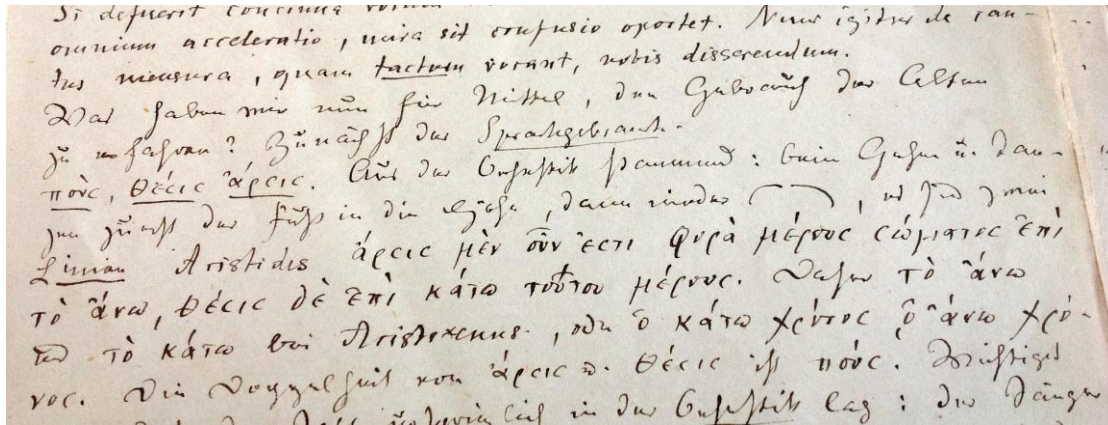 Si defuerit concinna
omnium acceleratio, mira sit confusio oportet. Nunc igitur de can-
tus mensura, quam tactum vocant, nobis disserendum.
Was haben wir nun für Mittel, den Gebrauch der Alten
zu erfahren? Zunächst der Sprachgebrauch.
πούϲ, θέϲιϲ ἄρϲιϲ. Aus der Orchestik stammend: beim Gehen u. Tan-
zen zuerst der Fuß in die Höhe, dann nieder , es sind zwei
Linien Aristides ἄρϲιϲ μὲν οὖν ἐϲτι φορὰ μέρουϲ ϲώματοϲ ἐπὶ
τὸ ἄνω, θέϲιϲ δὲ ἐπὶ κάτω τούτου μέρουϲ. Daher τὸ ἄνω
und τὸ κάτω bei Aristoxenus, oder ὁ κάτω χρόνοϲ ὁ ἄνω χρό-
νοϲ. Die Doppelheit von ἄρϲιϲ u. θέϲιϲ ist πούϲ. Wichtiges
in der Orchestik lag: der Sänger